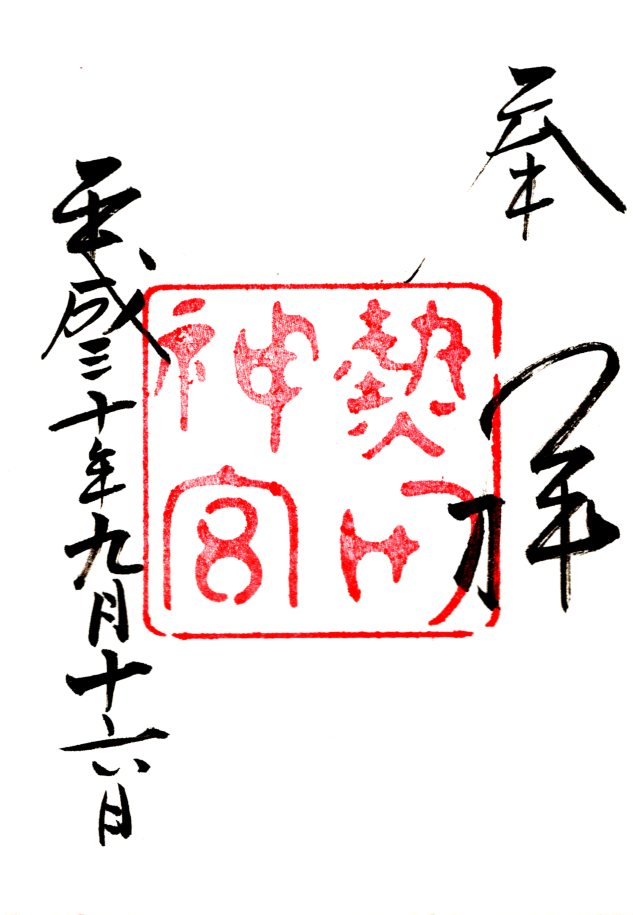 奉拝
熱田
神宮
平成三十年九月十六日